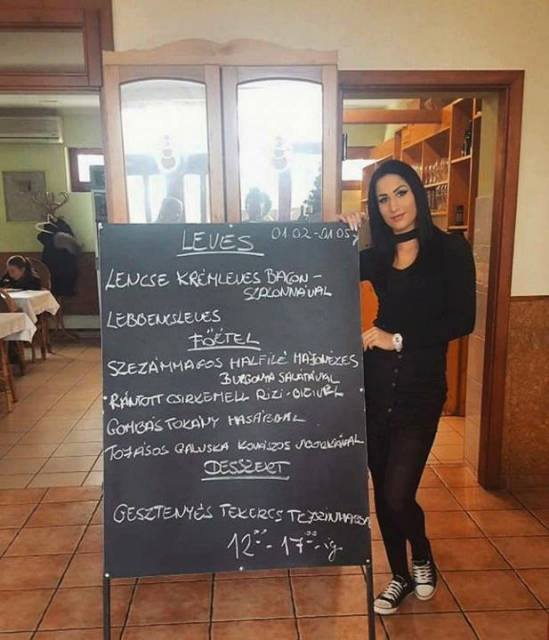 LEVES 01.02-01.05
LENCSE KRÉMLEVES BACON-
SZALONNÁVAL
LEBBENCSLEVES
FŐÉTEL
SZEZÁMMAGOS HALFILÉ MAJONÉZES
BURGONYA SALÁTÁVAL
RÁNTOTT CSIRKEMELL RIZI-BIZIVEL
GOMBÁS TOKÁNY
TOJÁSOS GALUSKA KOVÁSZOS
DESSZERT
GESZTENYÉS TEKERCS
12⁰⁰-17⁰⁰-ig